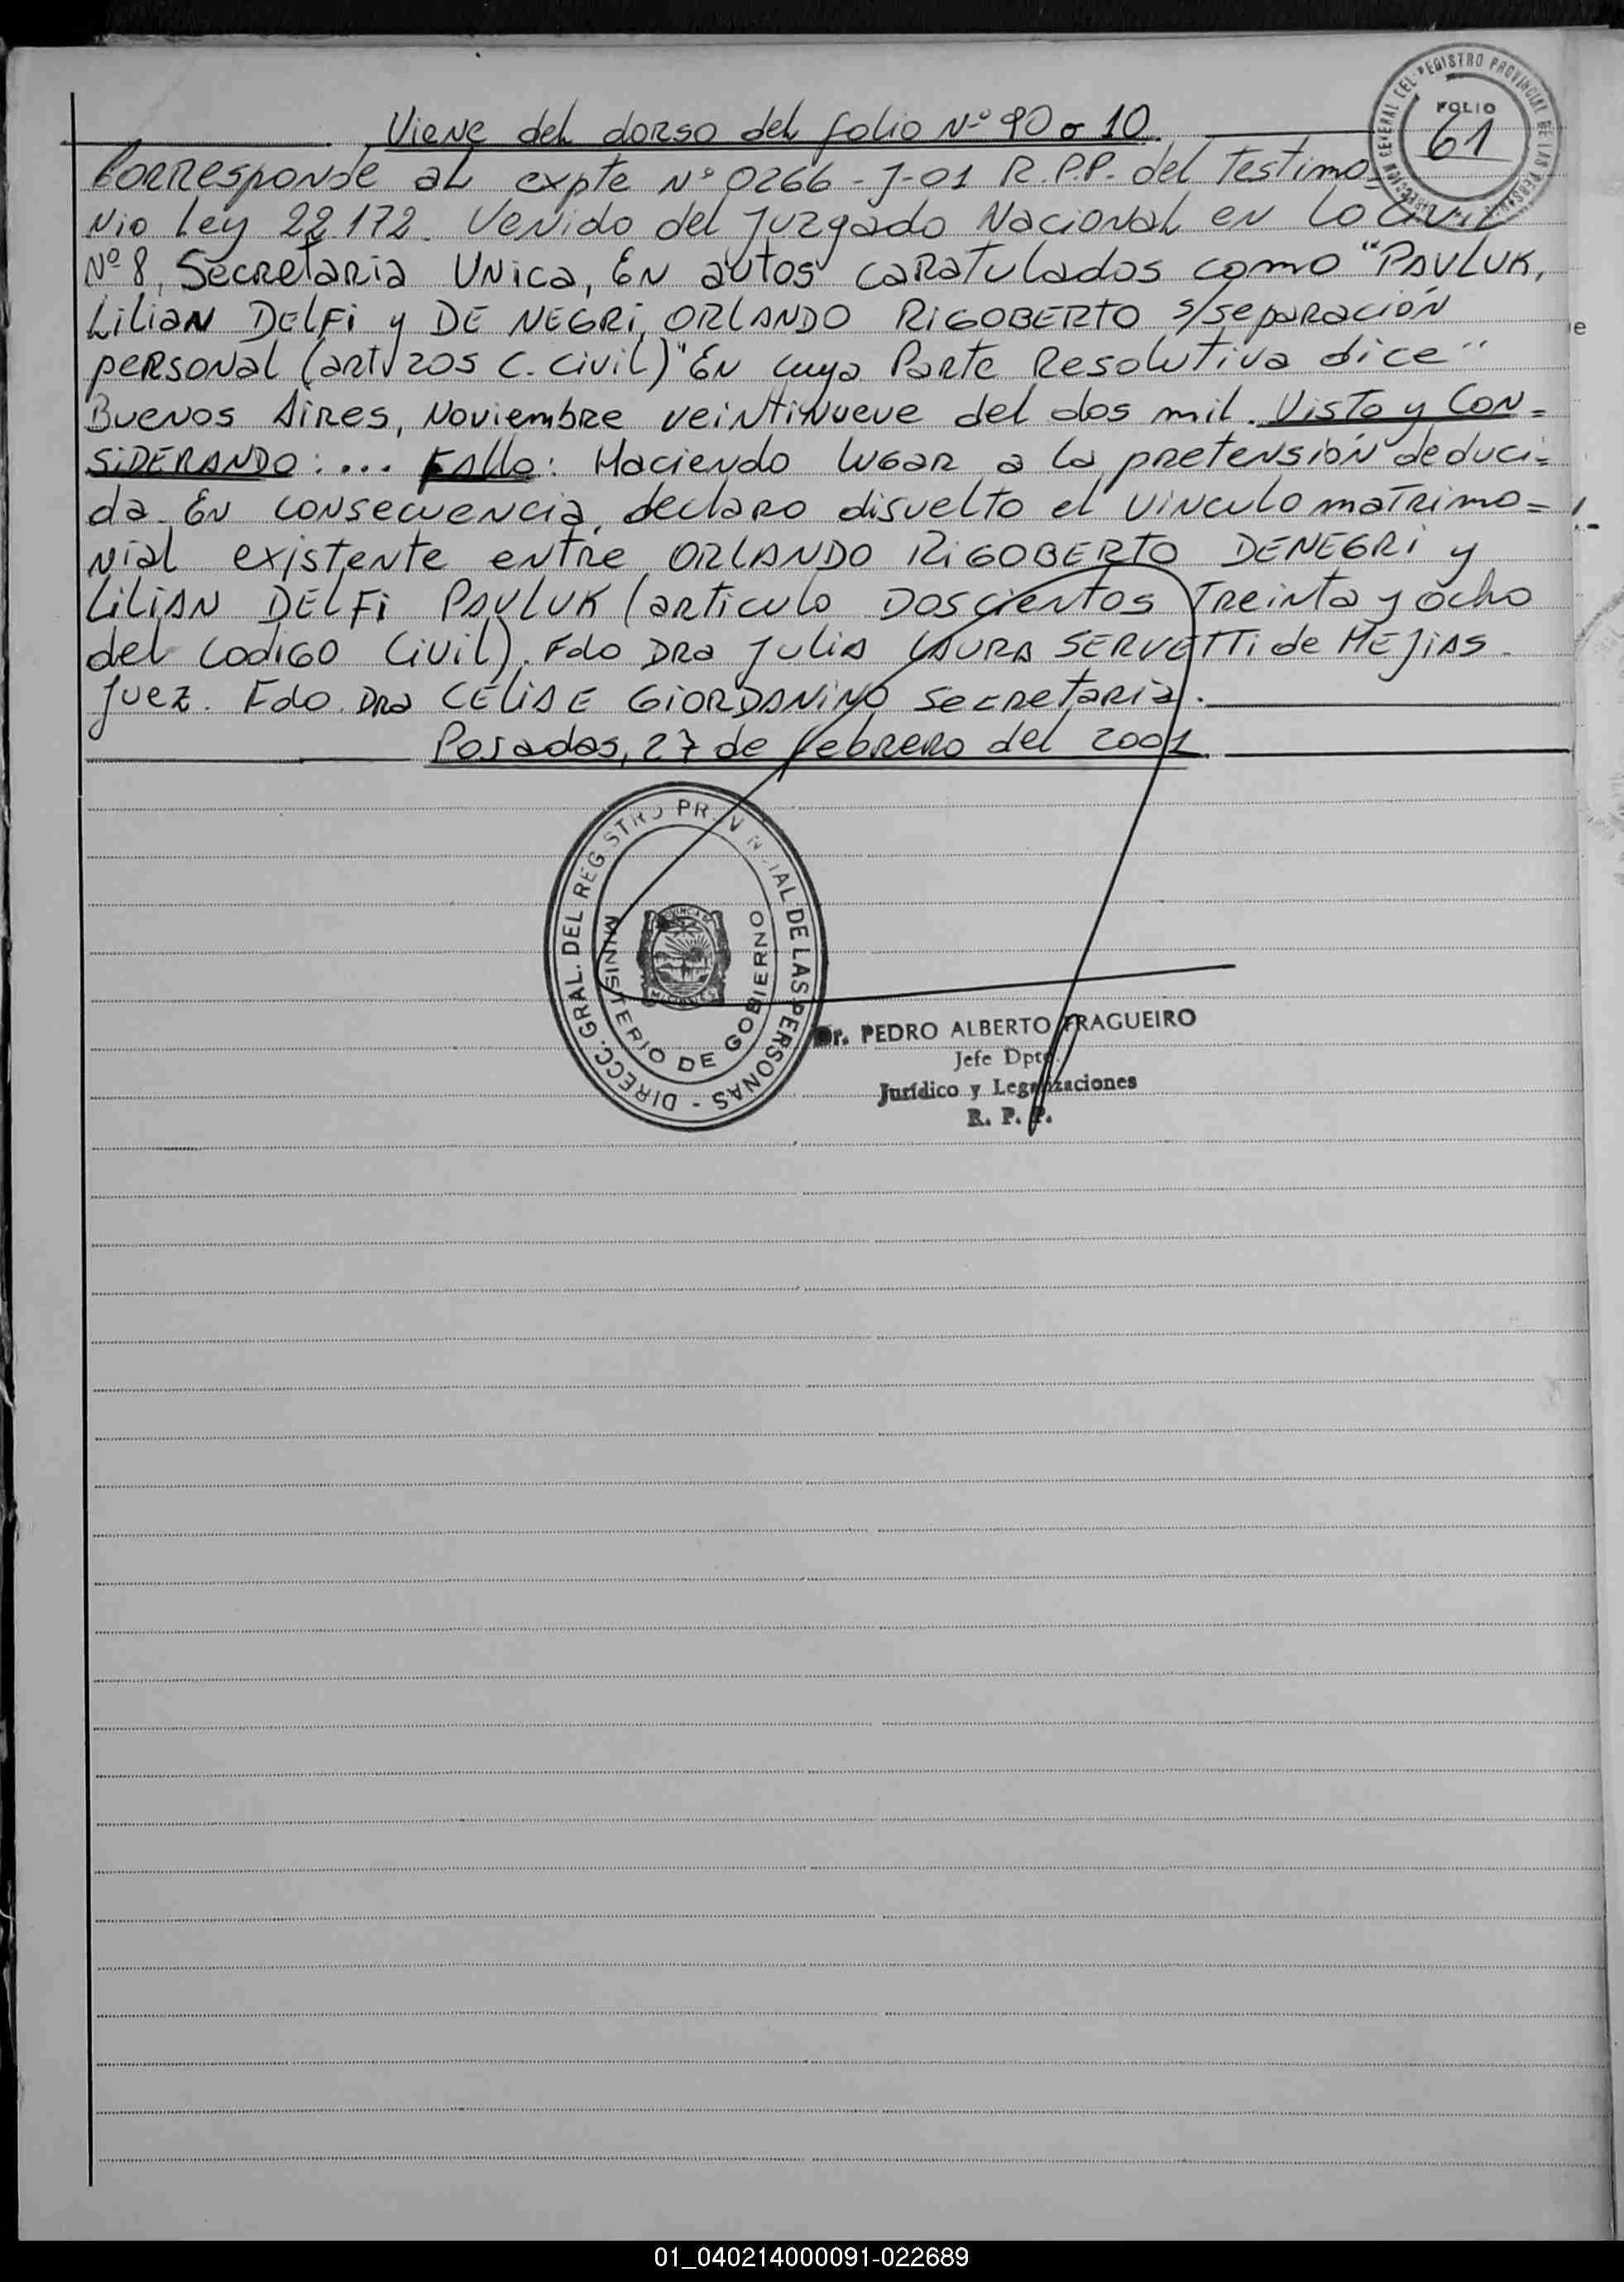 DIRECCION GENERAL DEL REGISTRO PROVINCIAL DE LAS PERSONAS
FOLIO
61
Viene del dorso del folio Nº 90 o 10.
Corresponde al expte Nº 0266-J-01 R.P.P. del Testimo-
nio Ley 22.172. Venido del Juzgado Nacional en lo Civil
Nº 8, Secretaria Unica, En autos caratulados como "PAVLUK,
Lilian Delfi y DE NEGRi, ORLANDO RiGOBERTO s/separación
personal (art 205 C. Civil)" En cuya Parte Resolutiva dice"
Buenos Aires, Noviembre veintinueve del dos mil. Visto y Con=
SiDERANDO:... FAllo: Haciendo lugar a la pretensión deduci=
da. En consecuencia, declaro disuelto el vinculo matrimo=
nial existente entre ORLANDO RiGOBERTO DENEGRi y
LiLiAN DELFi PAVLUK (articulo Doscientos Treinta y ocho
del codigo Civil). Fdo Dra Julia LAURA SERVETTi de MEJiAS.
Juez. Fdo. Dra CELiA E GiORDANiNO Secretaria.
Posadas, 27 de febrero del 2001.
DIRECC. GRAL. DEL REGISTRO PROVINCIAL DE LAS PERSONAS -
MINISTERIO DE GOBIERNO
PROVINCIA DE
MISIONES
Dr. PEDRO ALBERTO FRAGUEIRO
Jefe Dpto.
Jurídico y Legalizaciones
R. P. P.
e
01_040214000091-022689